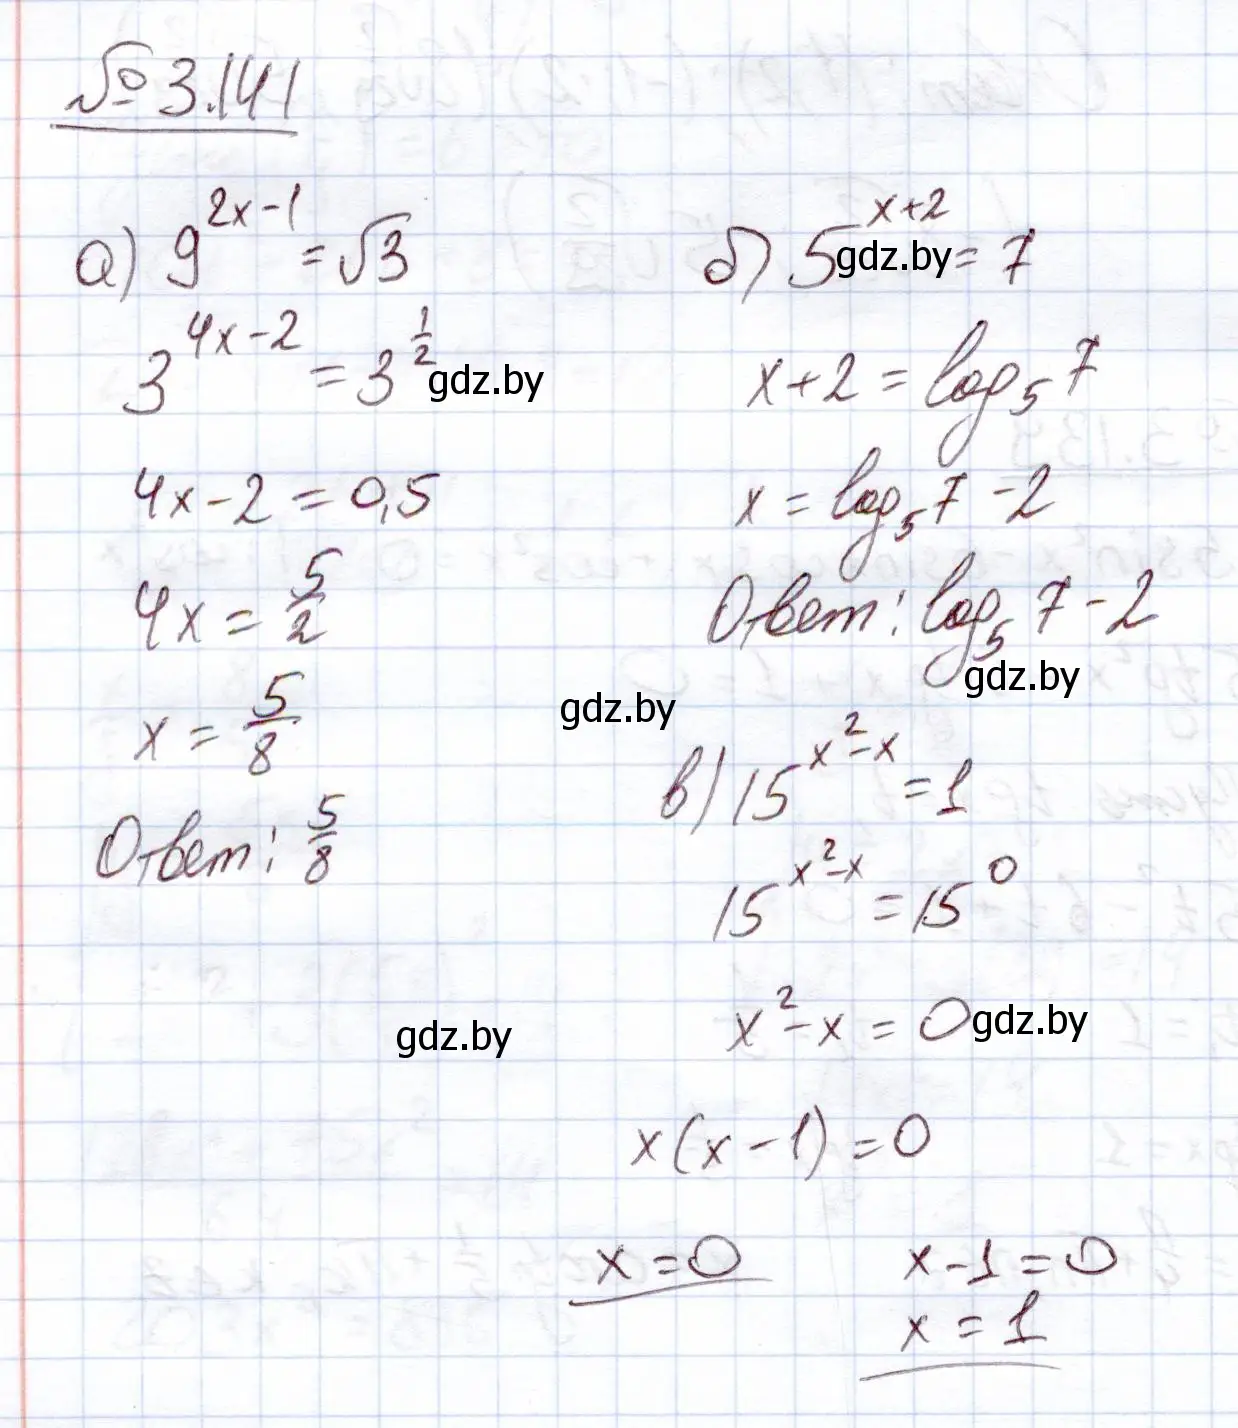 № 3.141
а) 9^{2x-1} = √3
3^{4x-2} = 3^{1/2}
gdz.by
4x-2 = 0,5
4x = 5/2
x = 5/8
Ответ: 5/8
б) 5^{x+2} = 7
gdz.by
x+2 = log₅7
x = log₅7 - 2
Ответ: log₅7 - 2
gdz.by
gdz.by
в) 15^{x²-x} = 1
15^{x²-x} = 15^0
x²-x = 0
gdz.by
gdz.by
x(x-1) = 0
x = 0
x-1 = 0
x = 1